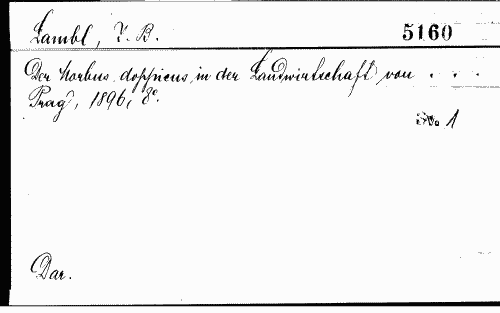 Lambl, J. B. 5160
Der Morbus doppicus in der Landwirtschaft von . . .
Prag, 1896, 8º.
Sv. 1
Dar.